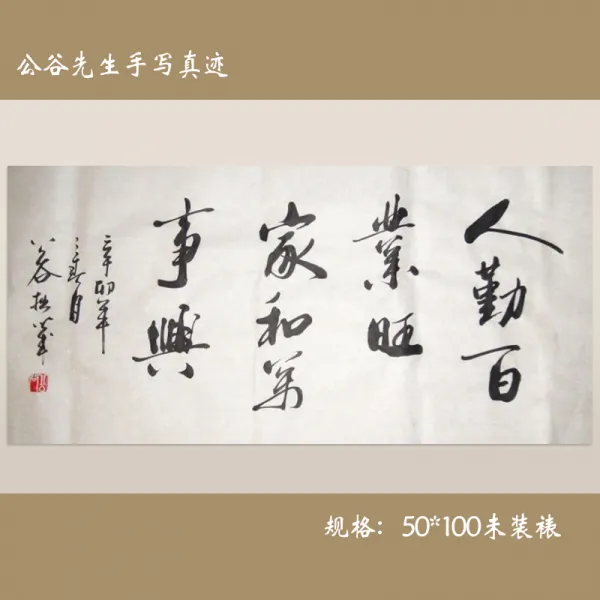 公谷先生手写真迹
人勤百
業旺
家和万
事興
辛卯年
公谷拙筆
规格：50*100未装裱